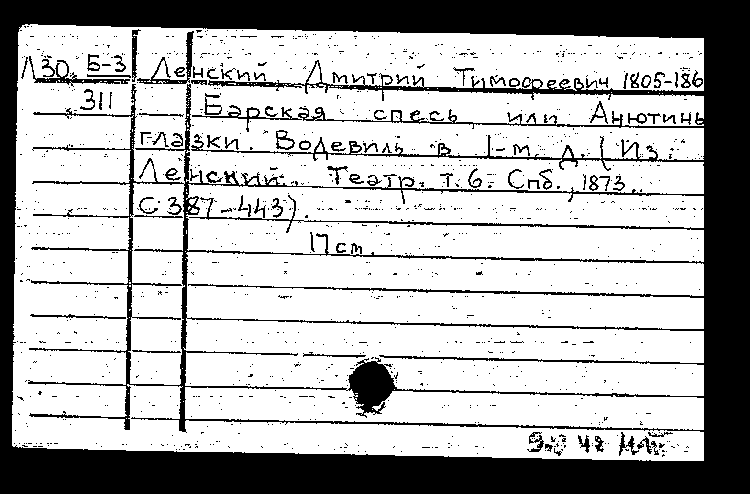 Л30. Б-3 Ленский, Дмитрий Тимофеевич, 1805-186
311 Барская спесь, или Анютины
глазки. Водевиль в 1-м. д. (Из:
Ленский. Театр. т. 6. Спб., 1873.
С 387-443).
17 cm.